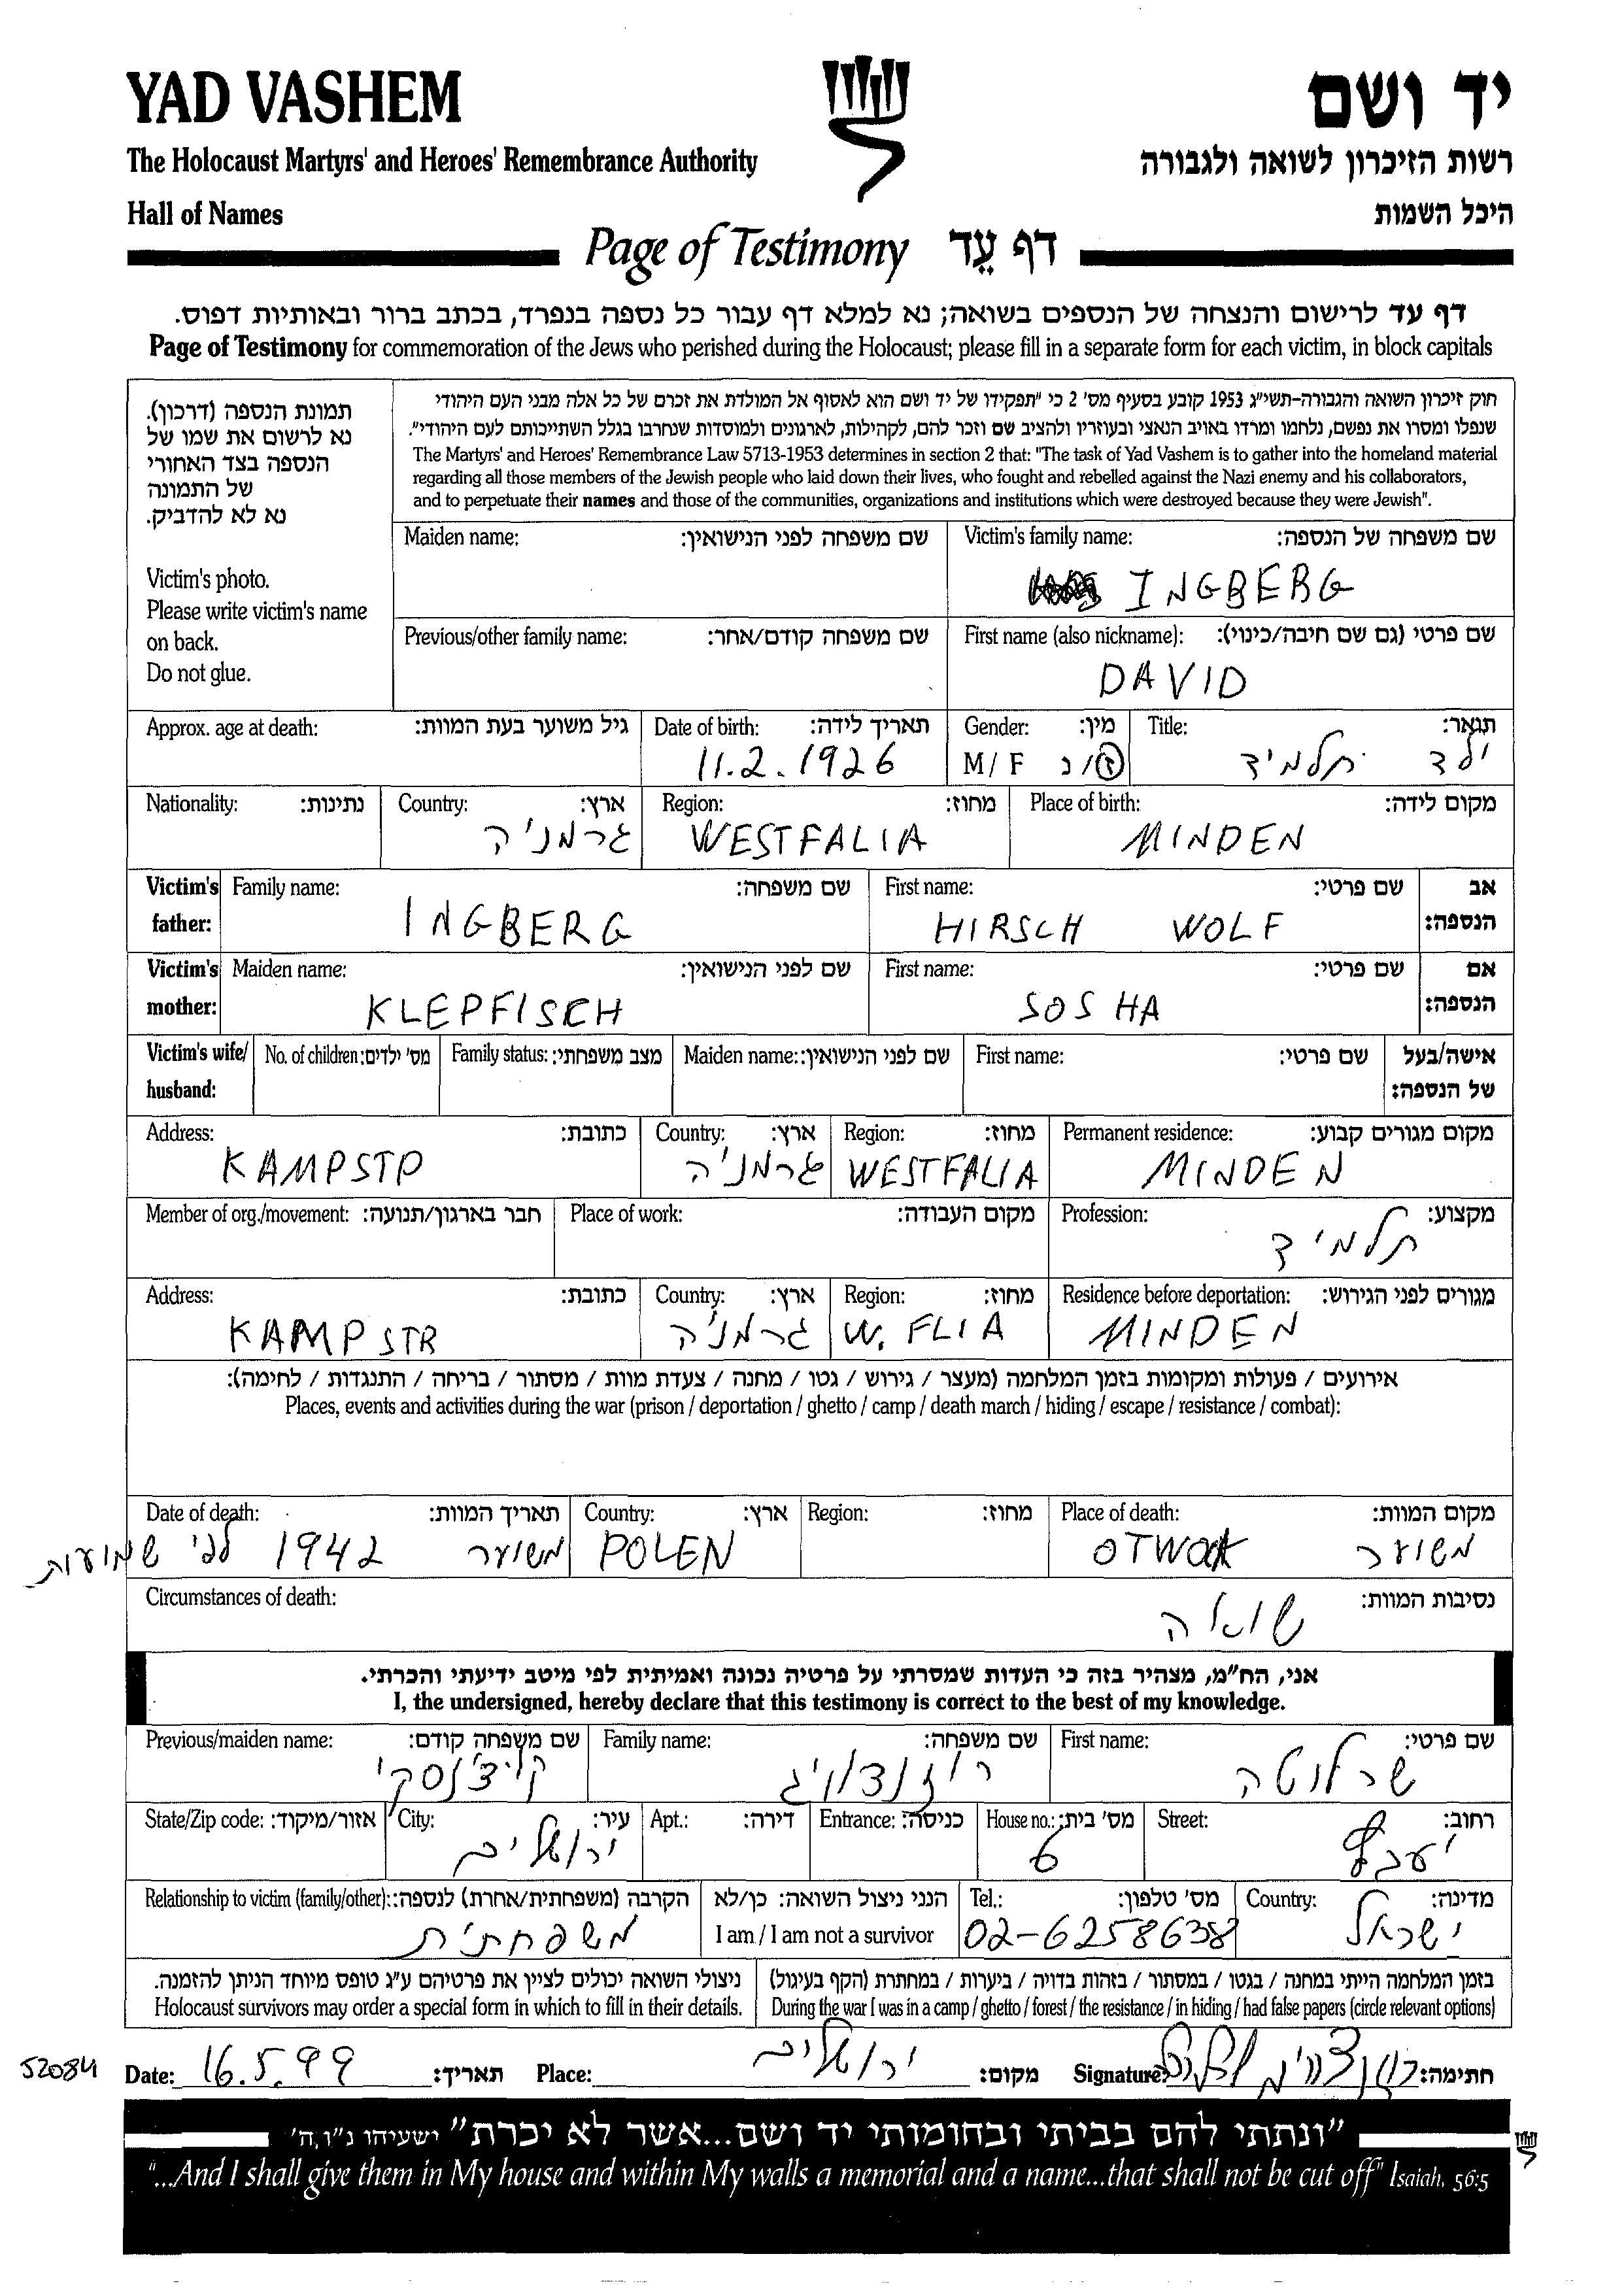 YAD VASHEM
יד ושם
The Holocaust Martyrs' and Heroes' Remembrance Authority
רשות הזיכרון לשואה ולגבורה
Hall of Names
היכל השמות
Page of Testimony דף עֵד
דף עד לרישום והנצחה של הנספים בשואה; נא למלא דף עבור כל נספה בנפרד, בכתב ברור ובאותיות דפוס.
Page of Testimony for commemoration of the Jews who perished during the Holocaust; please fill in a separate form for each victim, in block capitals
תמונת הנספה (דרכון).
נא לרשום את שמו של
הנספה בצד האחורי
של התמונה
נא לא להדביק.
Victim's photo.
Please write victim's name
on back.
Do not glue.
חוק זיכרון השואה והגבורה-תשי"ג 1953 קובע בסעיף מס' 2 כי "תפקידו של יד ושם הוא לאסוף אל המולדת את זכרם של כל אלה מבני העם היהודי
שנפלו ומסרו את נפשם, נלחמו ומרדו באויב הנאצי ובעוזריו ולהציב שם וזכר להם, לקהילות, לארגונים ולמוסדות שנחרבו בגלל השתייכותם לעם היהודי".
The Martyrs' and Heroes' Remembrance Law 5713-1953 determines in section 2 that: "The task of Yad Vashem is to gather into the homeland material
regarding all those members of the Jewish people who laid down their lives, who fought and rebelled against the Nazi enemy and his collaborators,
and to perpetuate their names and those of the communities, organizations and institutions which were destroyed because they were Jewish".
Maiden name: שם משפחה לפני הנישואין: Victim's family name: שם משפחה של הנספה:
INGBERG
Previous/other family name: שם משפחה קודם/אחר: First name (also nickname): שם פרטי (גם שם חיבה/כינוי):
DAVID
Approx. age at death: גיל משוער בעת המוות: Date of birth: תאריך לידה: Gender: מין: Title: תואר:
11.2.1926 M/F ז/נ ילד תלמיד
Nationality: נתינות: Country: ארץ: Region: מחוז: Place of birth: מקום לידה:
גרמניה WESTFALIA MINDEN
Victim's father: Family name: שם משפחה: First name: שם פרטי: אב הנספה:
INGBERG HIRSCH WOLF
Victim's mother: Maiden name: שם לפני הנישואין: First name: שם פרטי: אם הנספה:
KLEPFISCH SOSHA
Victim's wife/ husband: No. of children: מס' ילדים: Family status: מצב משפחתי: Maiden name: שם לפני הנישואין: First name: שם פרטי: אישה/בעל של הנספה:
Address: כתובת: Country: ארץ: Region: מחוז: Permanent residence: מקום מגורים קבוע:
KAMPSTR גרמניה WESTFALIA MINDEN
Member of org./movement: חבר בארגון/תנועה: Place of work: מקום העבודה: Profession: מקצוע:
תלמיד
Address: כתובת: Country: ארץ: Region: מחוז: Residence before deportation: מגורים לפני הגירוש:
KAMPSTR גרמניה W. FLIA MINDEN
אירועים / פעולות ומקומות בזמן המלחמה (מעצר / גירוש / גטו / מחנה / צעדת מוות / מסתור / בריחה / התנגדות / לחימה):
Places, events and activities during the war (prison / deportation / ghetto / camp / death march / hiding / escape / resistance / combat):
Date of death: תאריך המוות: Country: ארץ: Region: מחוז: Place of death: מקום המוות:
משוער 1942 לפי שמועות POLEN משוער OTWOCK
Circumstances of death: נסיבות המוות:
שואה
אני, הח"מ, מצהיר בזה כי העדות שמסרתי על פרטיה נכונה ואמיתית לפי מיטב ידיעתי והכרתי.
I, the undersigned, hereby declare that this testimony is correct to the best of my knowledge.
Previous/maiden name: שם משפחה קודם: Family name: שם משפחה: First name: שם פרטי:
רוזנצוויג שרלוטה
State/Zip code: אזור/מיקוד: City: עיר: Apt.: דירה: Entrance: כניסה: House no.: מס' בית: Street: רחוב:
ירושלים 6
Relationship to victim (family/other): הקרבה (משפחתית/אחרת) לנספה: הנני ניצול השואה: כן/לא Tel.: מס' טלפון: Country: מדינה:
משפחתית I am / I am not a survivor 02-6258638 ישראל
ניצולי השואה יכולים לציין את פרטיהם ע"ג טופס מיוחד הניתן להזמנה. בזמן המלחמה הייתי במחנה / בגטו / במסתור / בזהות בדויה / ביערות / במחתרת (הקף בעיגול)
Holocaust survivors may order a special form in which to fill in their details. During the war I was in a camp / ghetto / forest / the resistance / in hiding / had false papers (circle relevant options)
52084 Date: 16.5.99 תאריך: Place: ירושלים מקום: Signature: חתימה:
"ונתתי להם בביתי ובחומותי יד ושם...אשר לא יכרת" ישעיהו נ"ו,ה'
"...And I shall give them in My house and within My walls a memorial and a name...that shall not be cut off" Isaiah, 56:5